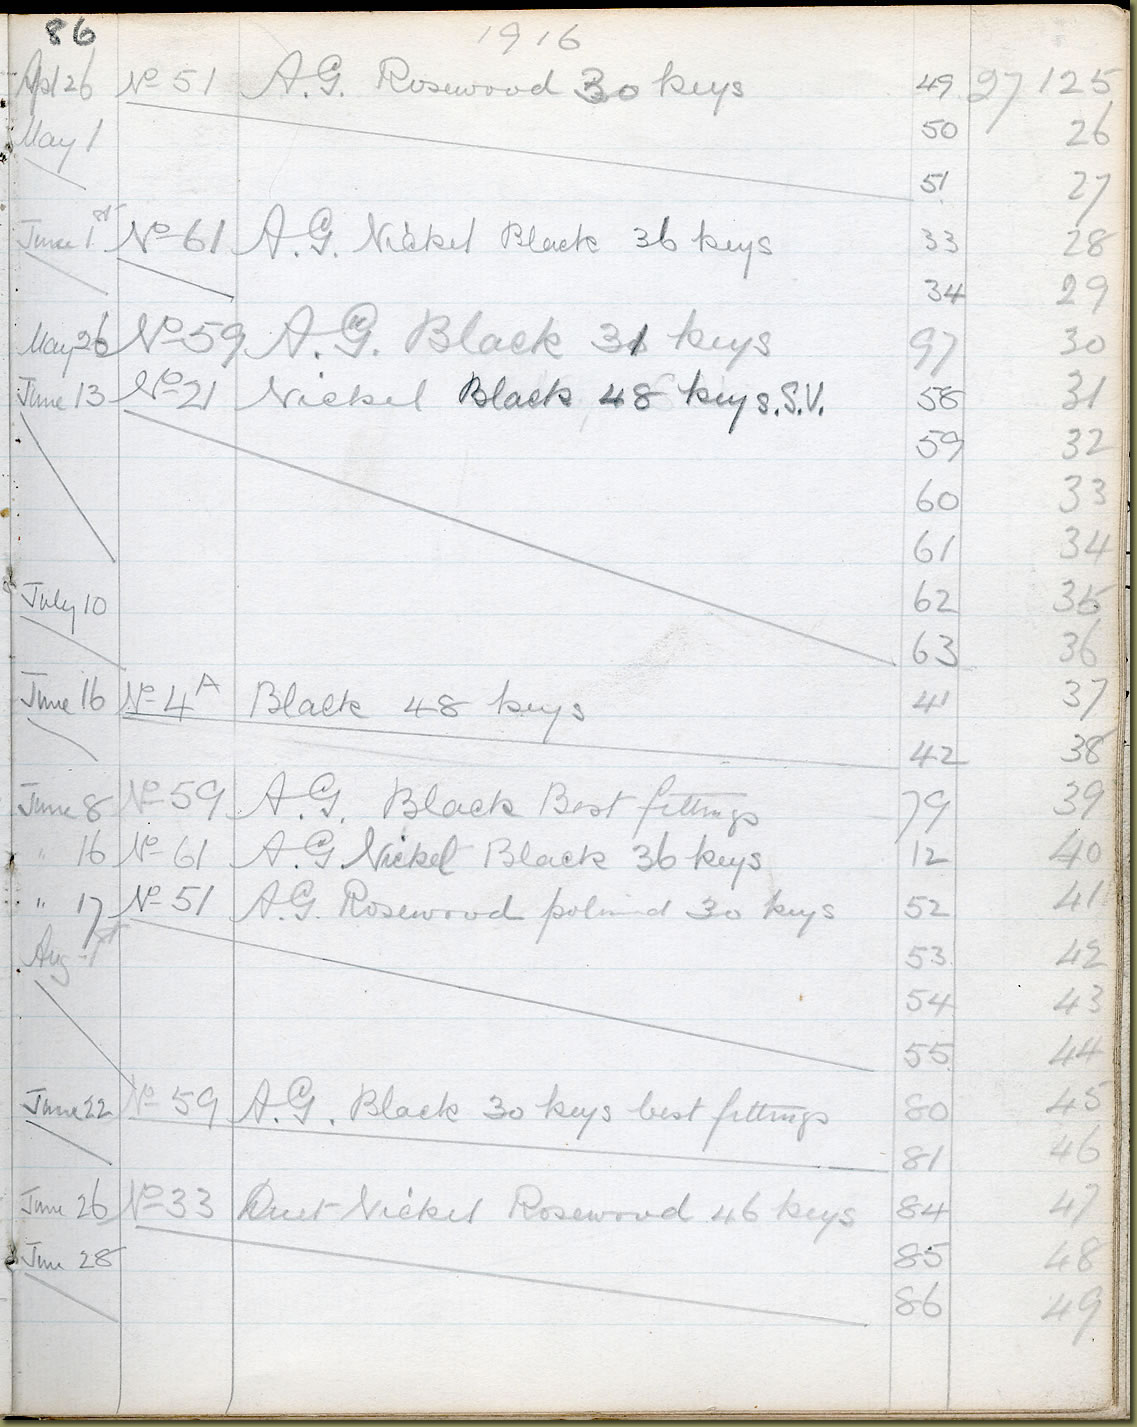 86 1916
Apl 26 No 51 A.G. Rosewood 30 keys 49 27125
May 1 50 26
51 27
June 1st No 61 A.G. Nickel Black 36 keys 33 28
34 29
May 26 No 59 A.G. Black 31 keys 97 30
June 13 No 21 Nickel Black 48 keys. S.V. 58 31
59 32
60 33
61 34
July 10 62 35
63 36
June 16 No 4A Black 48 keys 41 37
42 38
June 8 No 59 A.G. Black Best fittings 79 39
" 16 No 61 A.G. Nickel Black 36 keys 12 40
" 17 No 51 A.G. Rosewood 30 keys 52 41
Aug 1st 53 42
54 43
55 44
June 22 No 59 A.G. Black 30 keys best fittings 80 45
81 46
June 26 No 33 Duet Nickel Rosewood 46 keys 84 47
June 28 85 48
86 49